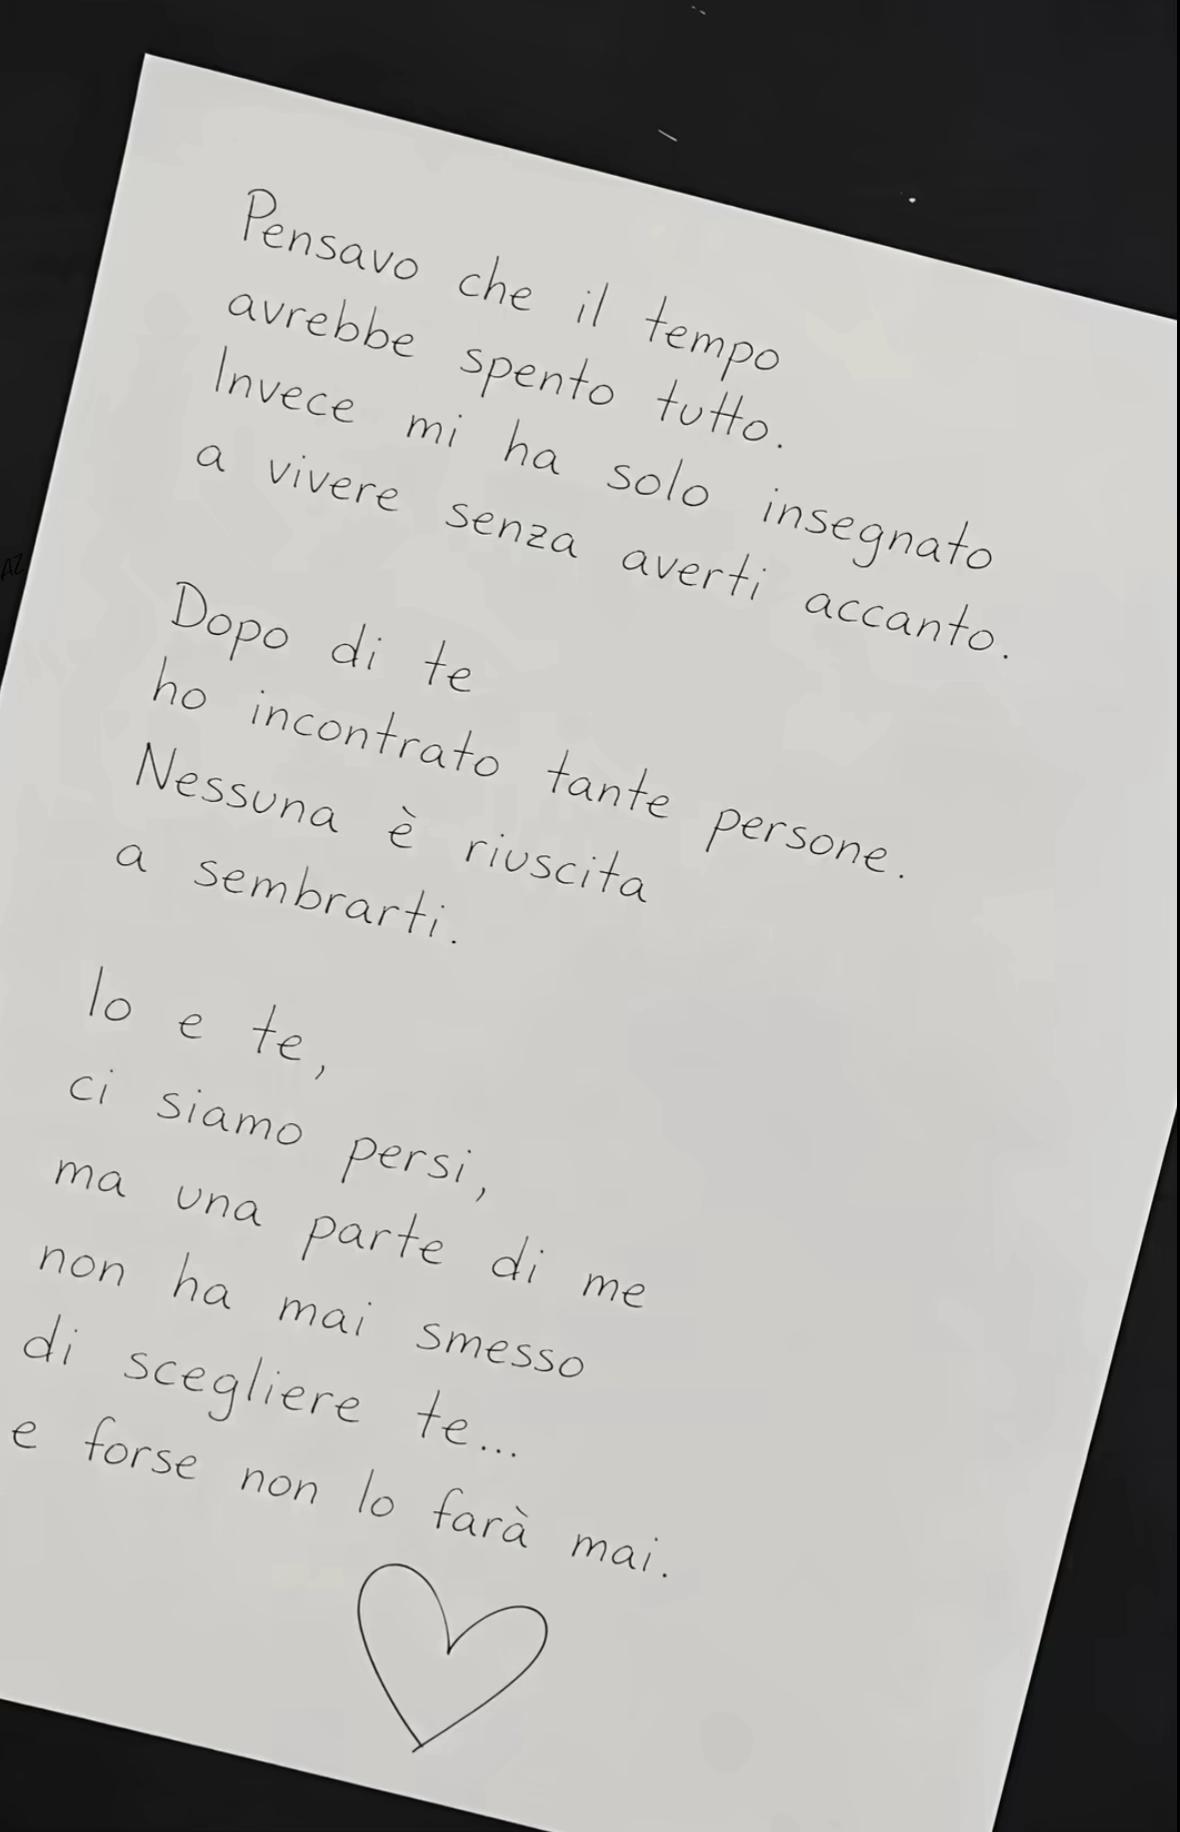 Pensavo che il tempo
avrebbe spento tutto.
Invece mi ha solo insegnato
a vivere senza averti accanto.
Dopo di te
ho incontrato tante persone.
Nessuna è riuscita
a sembrarti.
Io e te,
ci siamo persi,
ma una parte di me
non ha mai smesso
di scegliere te...
e forse non lo farà mai.
AZ